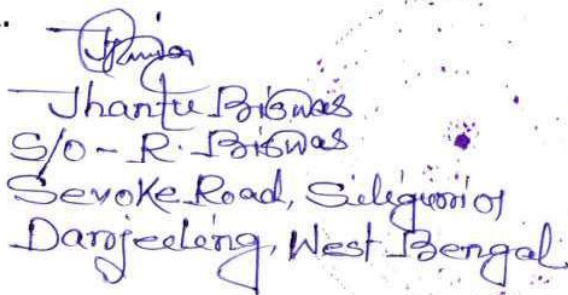 Jhantu Biswas
S/o - R. Biswas
Sevoke Road, Siliguri 01
Darjeeling, West Bengal